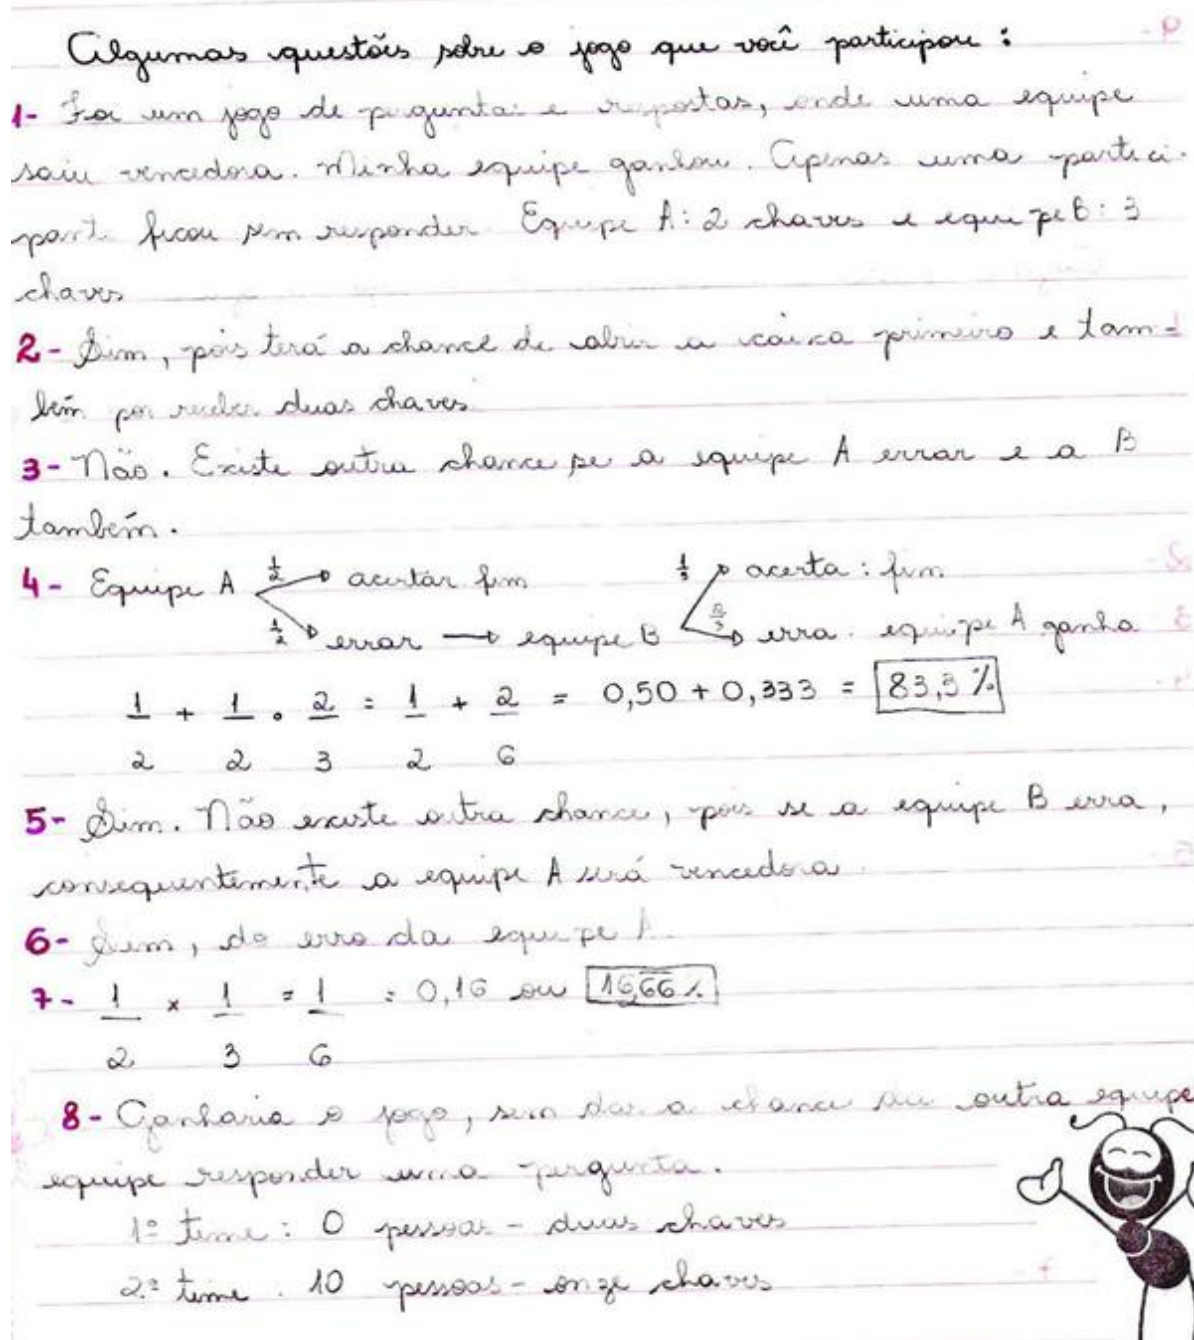 Algumas questões sobre o jogo que você participou:
1- Foi um jogo de perguntas e respostas, onde uma equipe
saiu vencedora. Minha equipe ganhou. Apenas uma partici-
pant ficou sem responder Equipe A: 2 chaves e equipe B: 3
chaves
2- Sim, pois terá a chance de abrir a caixa primeiro e tam-
bém por receber duas chaves
3- Não. Existe outra chance se a equipe A errar e a B
também.
4- Equipe A 1/2 acertar fim 1/3 acerta: fim
1/2 errar → equipe B 2/3 erra. equipe A ganha
1/2 + 1/2 . 2/3 = 1/2 + 2/6 = 0,50 + 0,333 = 83,3%
5- Sim. Não existe outra chance, pois se a equipe B erra,
consequentemente a equipe A será vencedora.
6- Sim, do erro da equipe A.
7- 1/2 x 1/3 = 1/6 = 0,16 ou 16,66%
8- Ganharia o jogo, sem dar a chance de outra equipe
equipe responder uma pergunta.
1º time: 0 pessoas - duas chaves
2º time: 10 pessoas - onze chaves